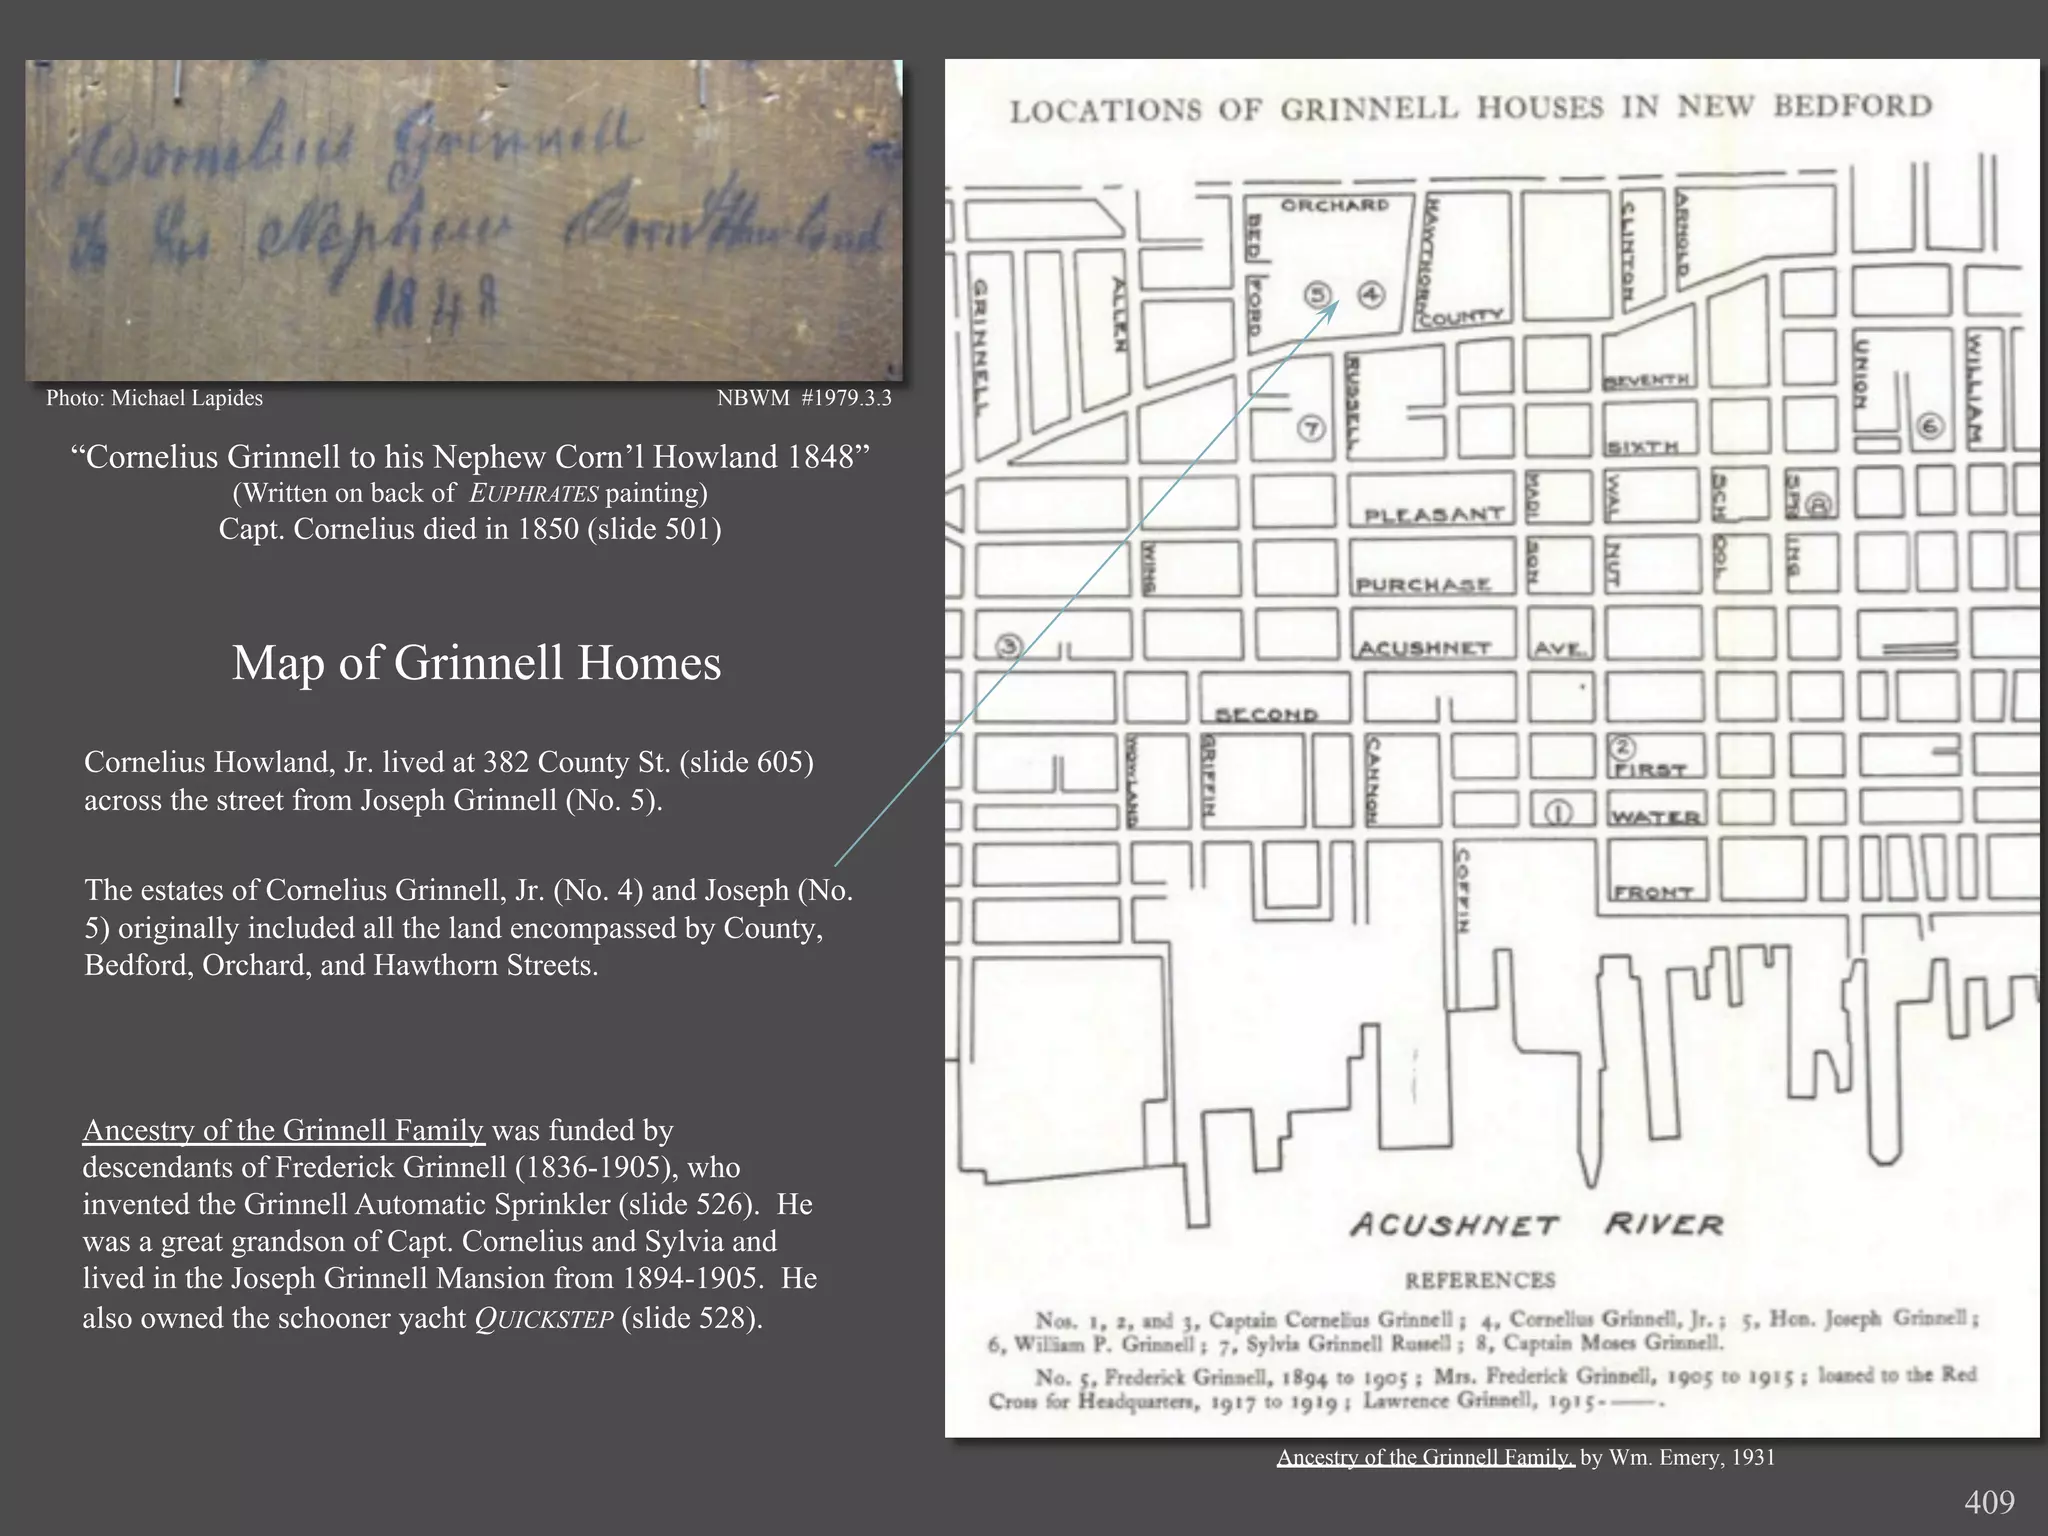 Cornelius Grinnell
To his Nephew Corn'l Howland
1848
Photo: Michael Lapides
NBWM #1979.3.3
“Cornelius Grinnell to his Nephew Corn’l Howland 1848”
(Written on back of EUPHRATES painting)
Capt. Cornelius died in 1850 (slide 501)
Map of Grinnell Homes
Cornelius Howland, Jr. lived at 382 County St. (slide 605)
across the street from Joseph Grinnell (No. 5).
The estates of Cornelius Grinnell, Jr. (No. 4) and Joseph (No.
5) originally included all the land encompassed by County,
Bedford, Orchard, and Hawthorn Streets.
Ancestry of the Grinnell Family was funded by
descendants of Frederick Grinnell (1836-1905), who
invented the Grinnell Automatic Sprinkler (slide 526). He
was a great grandson of Capt. Cornelius and Sylvia and
lived in the Joseph Grinnell Mansion from 1894-1905. He
also owned the schooner yacht QUICKSTEP (slide 528).
LOCATIONS OF GRINNELL HOUSES IN NEW BEDFORD
ORCHARD
BED FORD
HAWTHORN
CLINTON
ARNOLD
5
4
GRINNELL
ALLEN
COUNTY
RUSSELL
SEVENTH
UNION
WILLIAM
7
6
SIXTH
PLEASANT
MADI SON
WAL NUT
SCH OOL
SPR ING
8
WING
PURCHASE
3
ACUSHNET AVE.
SECOND
HOWLAND
GRIFFIN
CANNON
2
FIRST
1
WATER
COFFIN
FRONT
ACUSHNET RIVER
REFERENCES
Nos. 1, 2, and 3, Captain Cornelius Grinnell; 4, Cornelius Grinnell, Jr.; 5, Hon. Joseph Grinnell;
6, William P. Grinnell; 7, Sylvia Grinnell Russell; 8, Captain Moses Grinnell.
No. 5, Frederick Grinnell, 1894 to 1905; Mrs. Frederick Grinnell, 1905 to 1915; loaned to the Red
Cross for Headquarters, 1917 to 1919; Lawrence Grinnell, 1915-——.
Ancestry of the Grinnell Family, by Wm. Emery, 1931
409